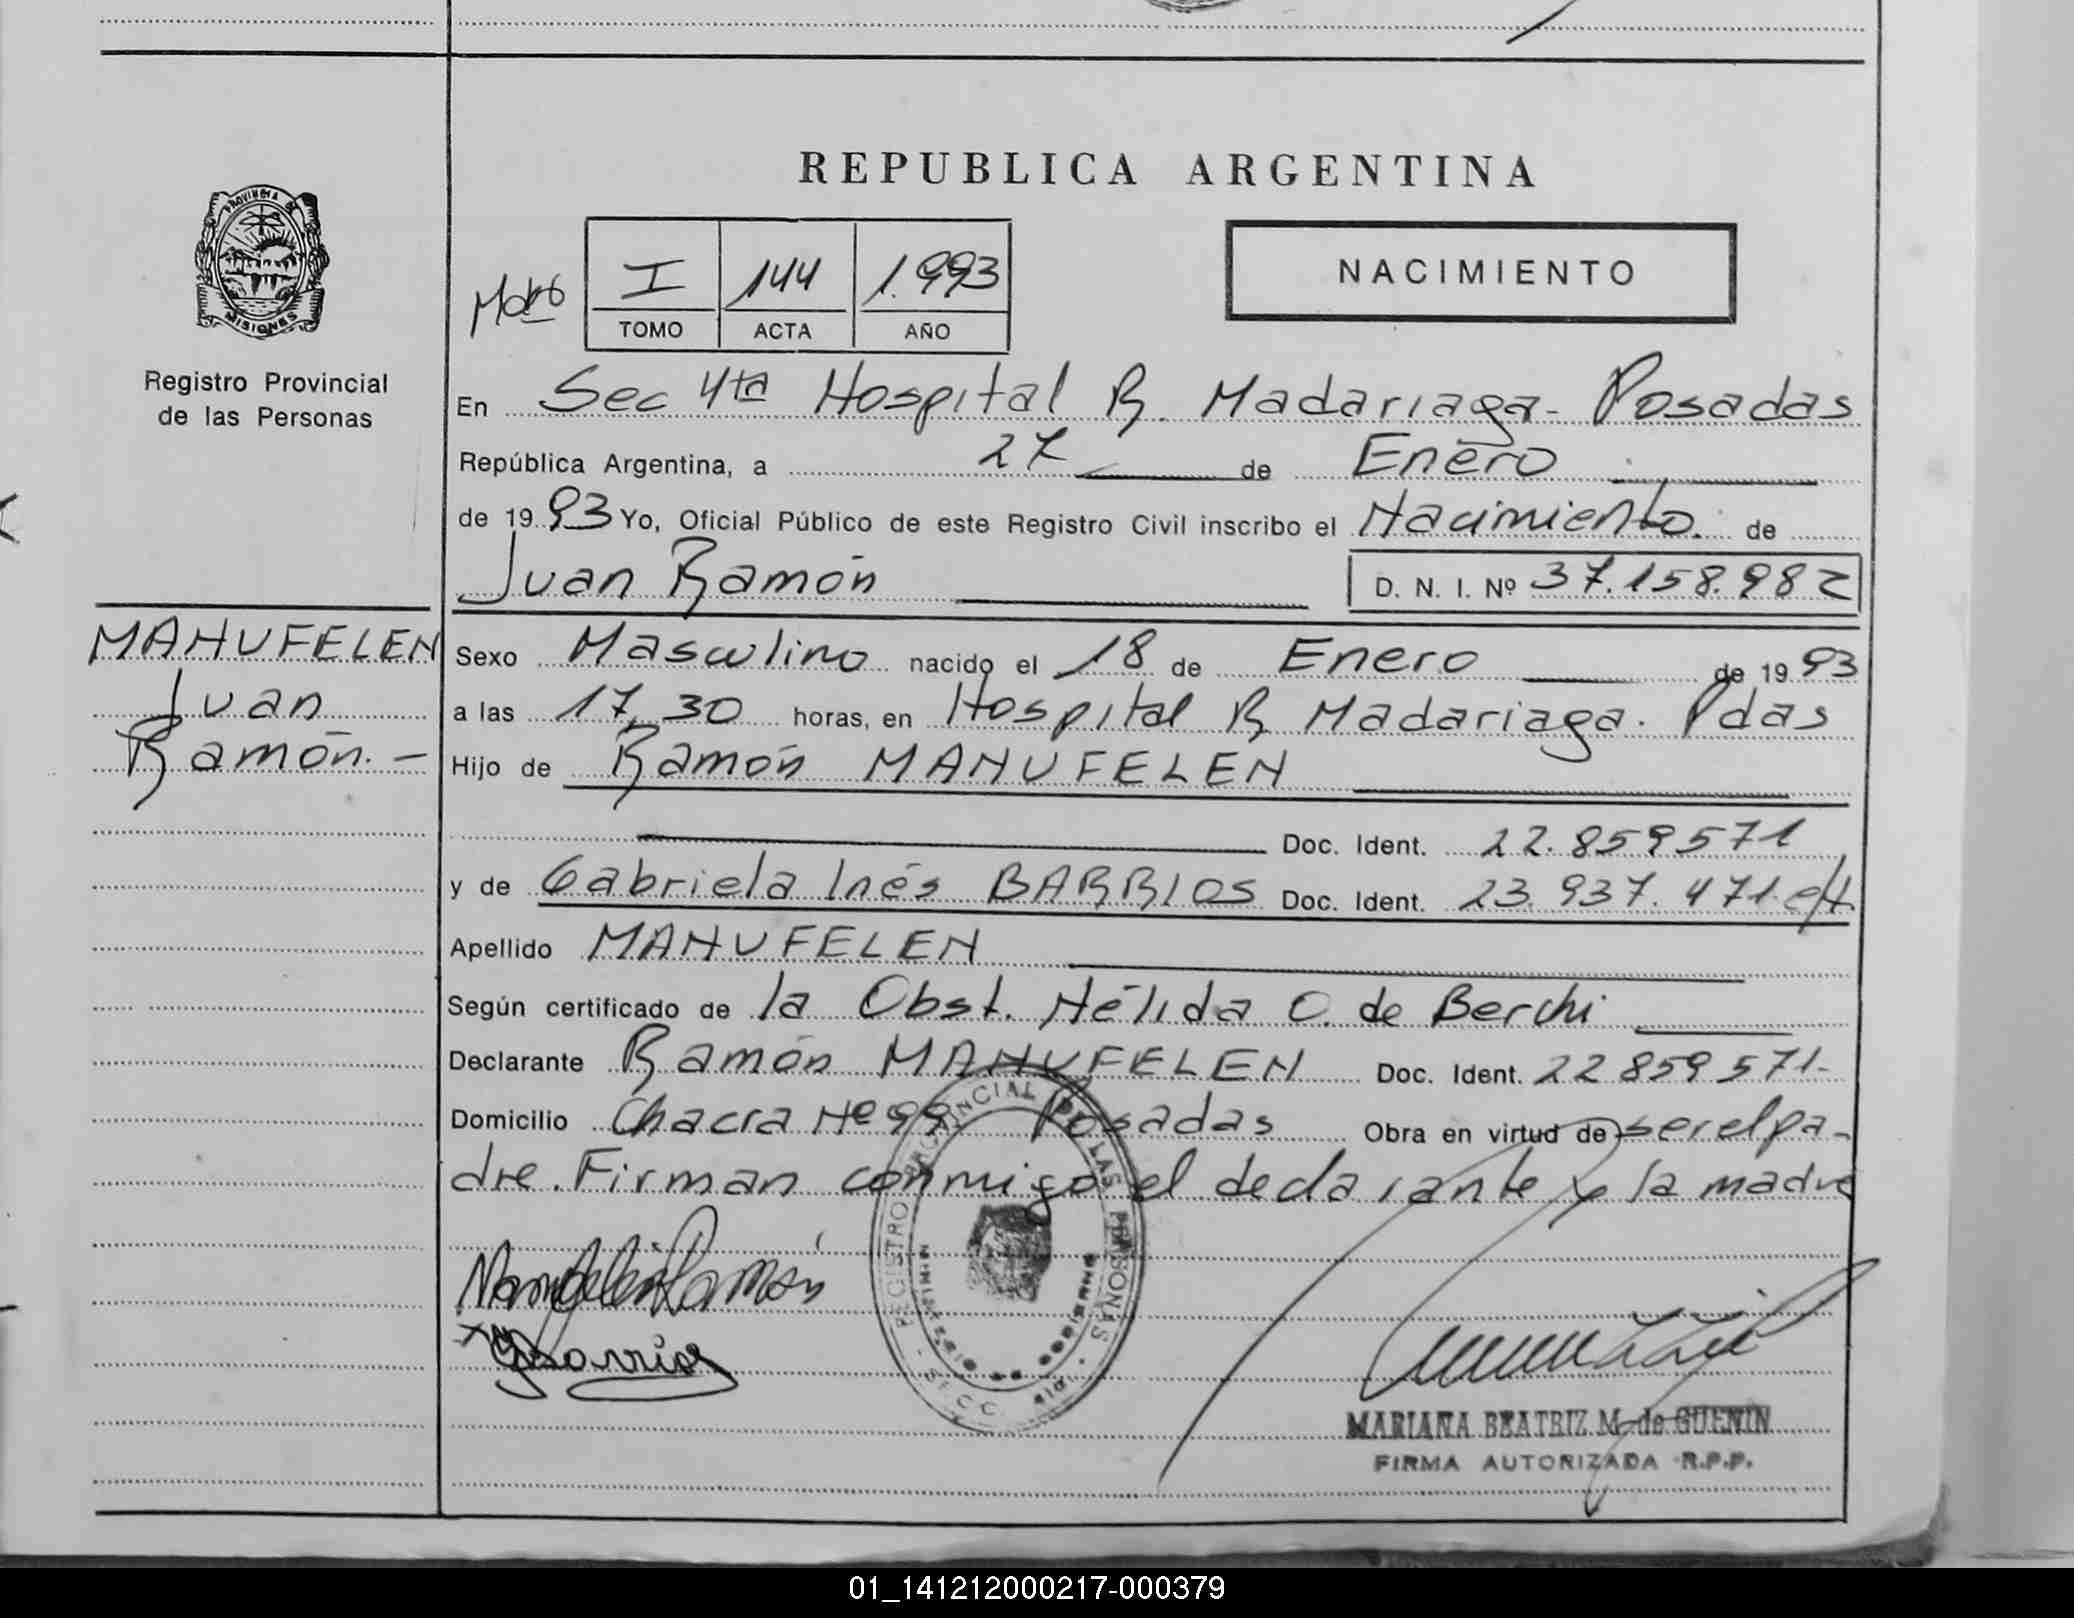 REPUBLICA ARGENTINA
PROVINCIA DE MISIONES
Registro Provincial
de las Personas
I 144 1.993
TOMO ACTA AÑO
NACIMIENTO
En Sec 4ta Hospital R. Madariaga - Posadas
República Argentina, a 27 de Enero
de 19 93 Yo, Oficial Público de este Registro Civil inscribo el Nacimiento. de
Juan Ramón D. N. I. Nº 37.158.982
MAHUFELEN
Juan
Ramón. -
Sexo Masculino nacido el 18 de Enero de 19 93
a las 17,30 horas, en Hospital R Madariaga. Pdas
Hijo de Ramón MAHUFELEN
Doc. Ident. 22.859571
y de Gabriela Inés BARRIOS Doc. Ident. 23.937.471
Apellido MAHUFELEN
Según certificado de la Obst. Nélida O. de Berchi
Declarante Ramón MAHUFELEN Doc. Ident. 22859571-
Domicilio Chacra Nº 99 Posadas Obra en virtud de ser el pa-
dre. Firman conmigo el declarante y la madre
REGISTRO PROVINCIAL DE LAS PERSONAS
MINISTERIO DE GOBIERNO
MARIANA BEATRIZ M. de GUENIN
FIRMA AUTORIZADA R.P.P.
01_141212000217-000379